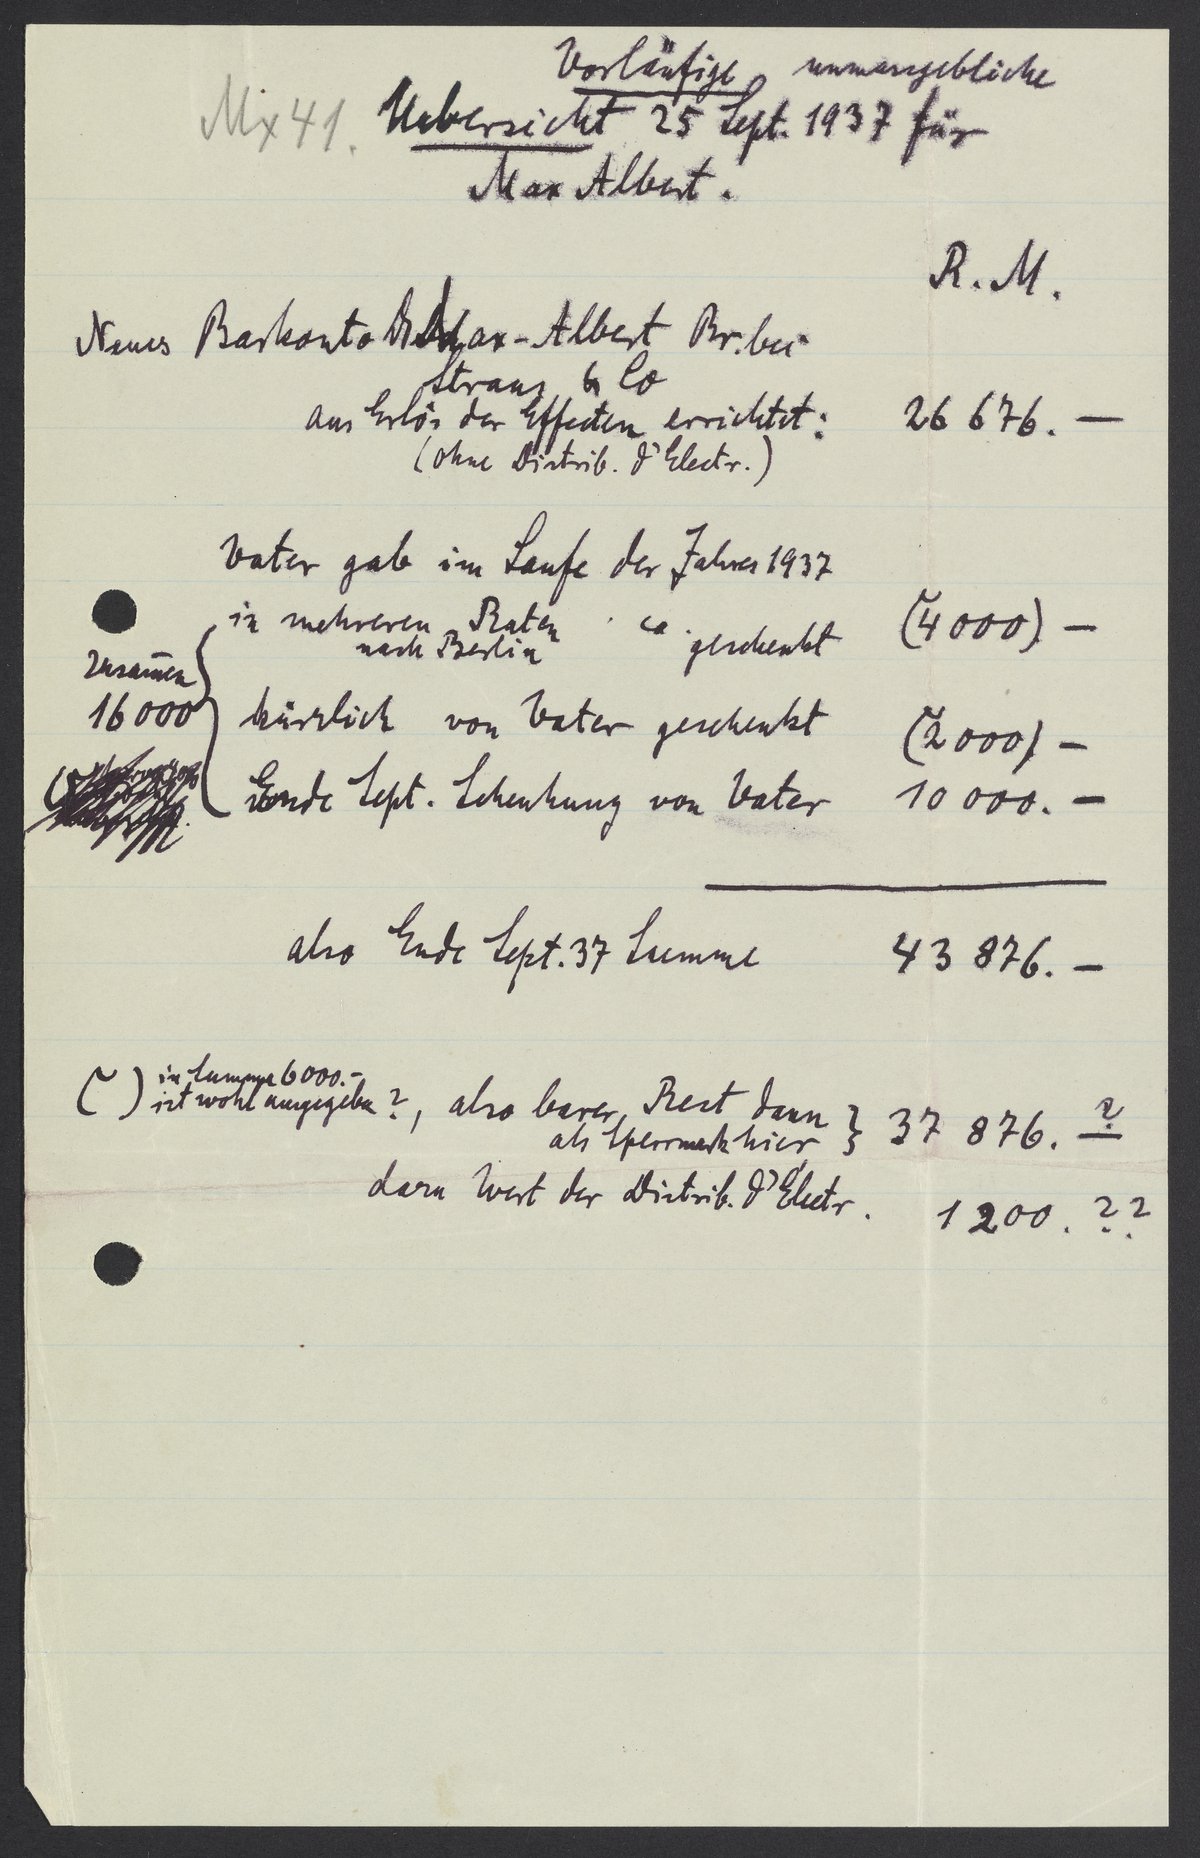 Vorläufige unmasgebliche
Mx 41. Uebersicht 25 Sept. 1937 für
Max Albert.
R. M.
Neues Barkonto Max-Albert Br. bei
Straus & Co
aus Erlös der Effecten errichtet: 26 676. —
(ohne Distrib. d'Electr.)
Vater gab im Laufe des Jahres 1937
in mehreren Raten ca. geschenkt (4 000) —
nach Berlin
zusam̄en
16 000
kürzlich von Vater geschenkt (2 000) —
Ende Sept. Schenkung von Vater 10 000. —
also Ende Sept. 37 Summe 43 876. —
( ) in Summe 6000.-
ist wohl ausgegeben?, also barer Rest dann } 37 876. ?
als Sperrmark hier
dazu Wert der Distrib. d'Electr. 1 200. ??